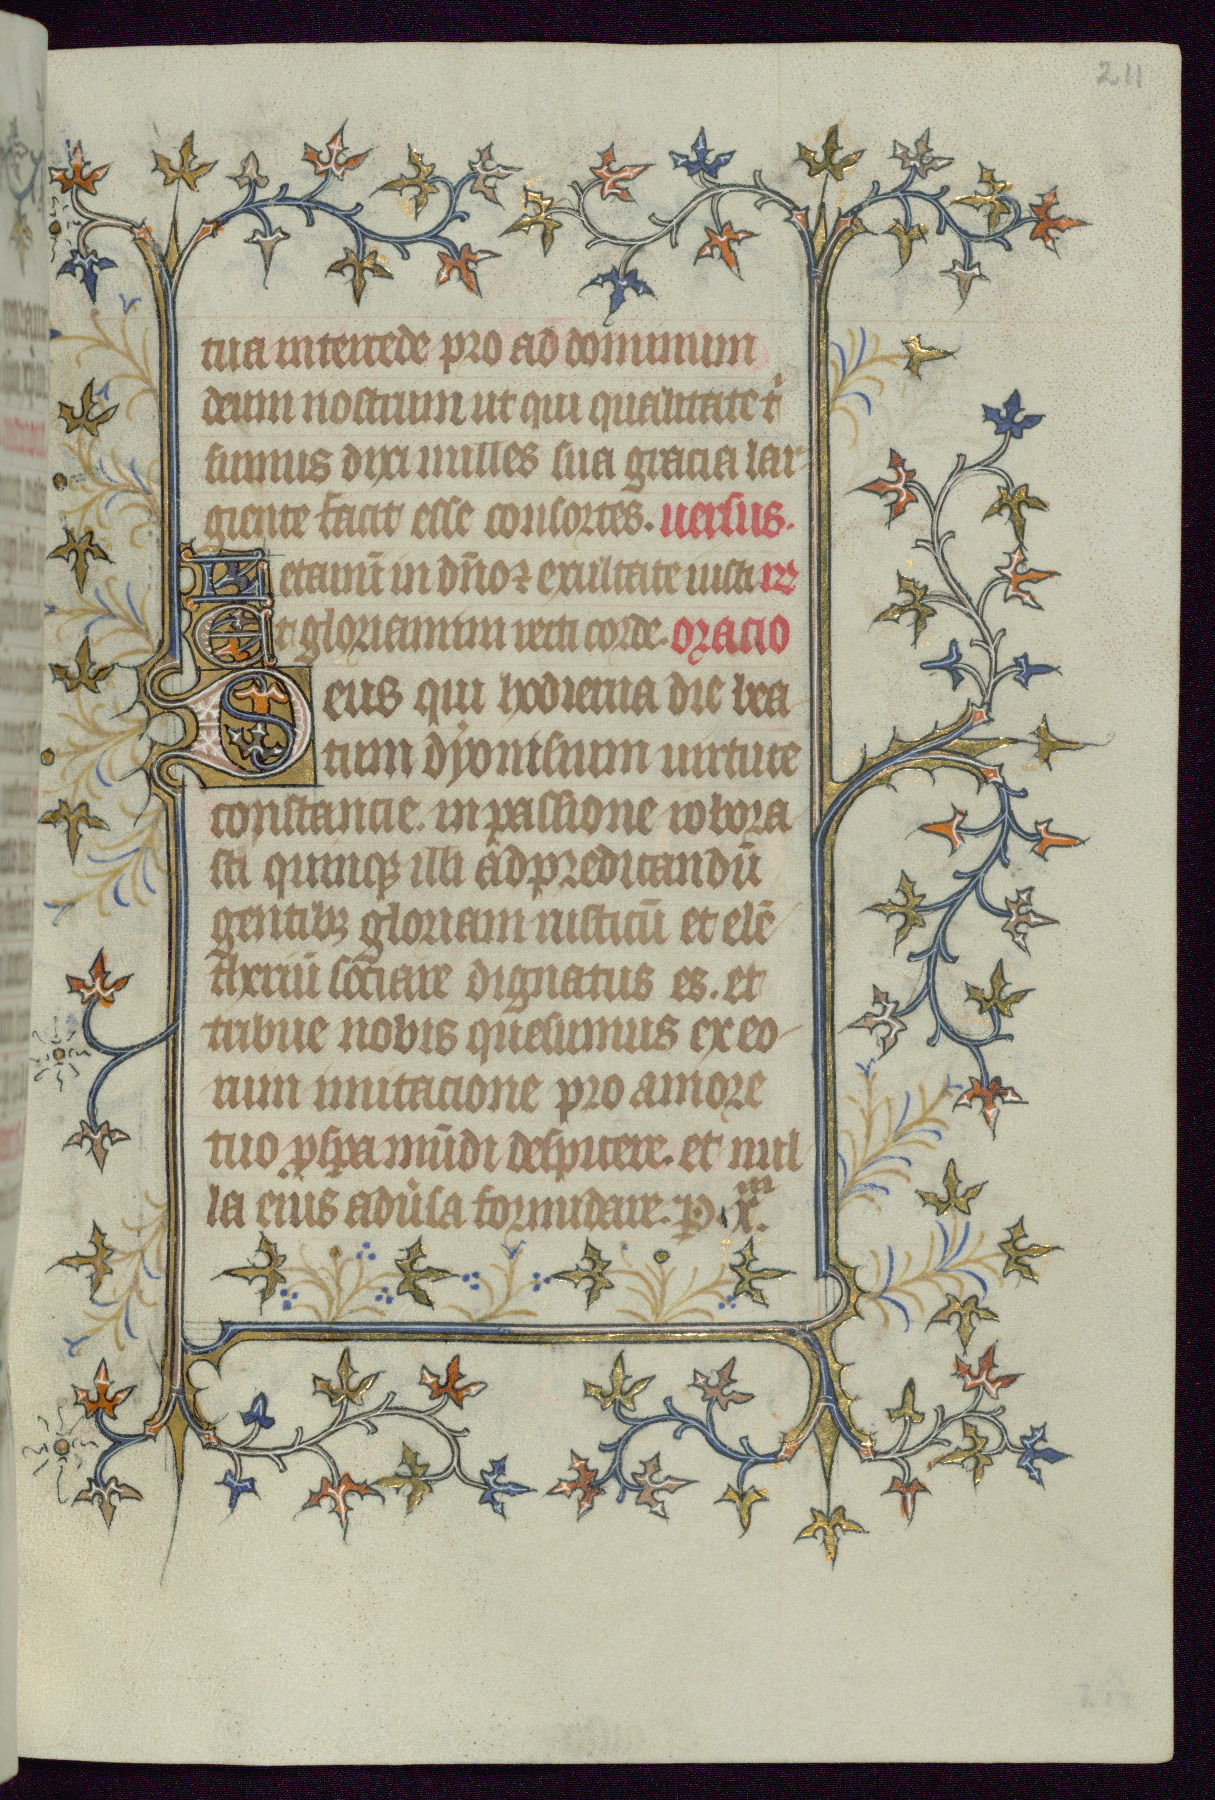 211
tua intercede pro ad dominum
deum nostrum ut qui qualitate t
sumus dixi milles sua gracia lar
giente facit esse consortes. uersus.
Letamī in dño et exultate iusti r
Et gloriamini recti corde. oracio
Deus qui hodierna die bea
tum dyonisium uirtute
constancie. in passione robora
sti quinqz illi ad predicandū
gentibz gloriam rusticū et elē
siare dignatus es. et
tribue nobis quesumus ex eo
rum imitacione pro amore
tuo pspa mūdi despicere. et nul
la eius adūsa formidare. p. x.